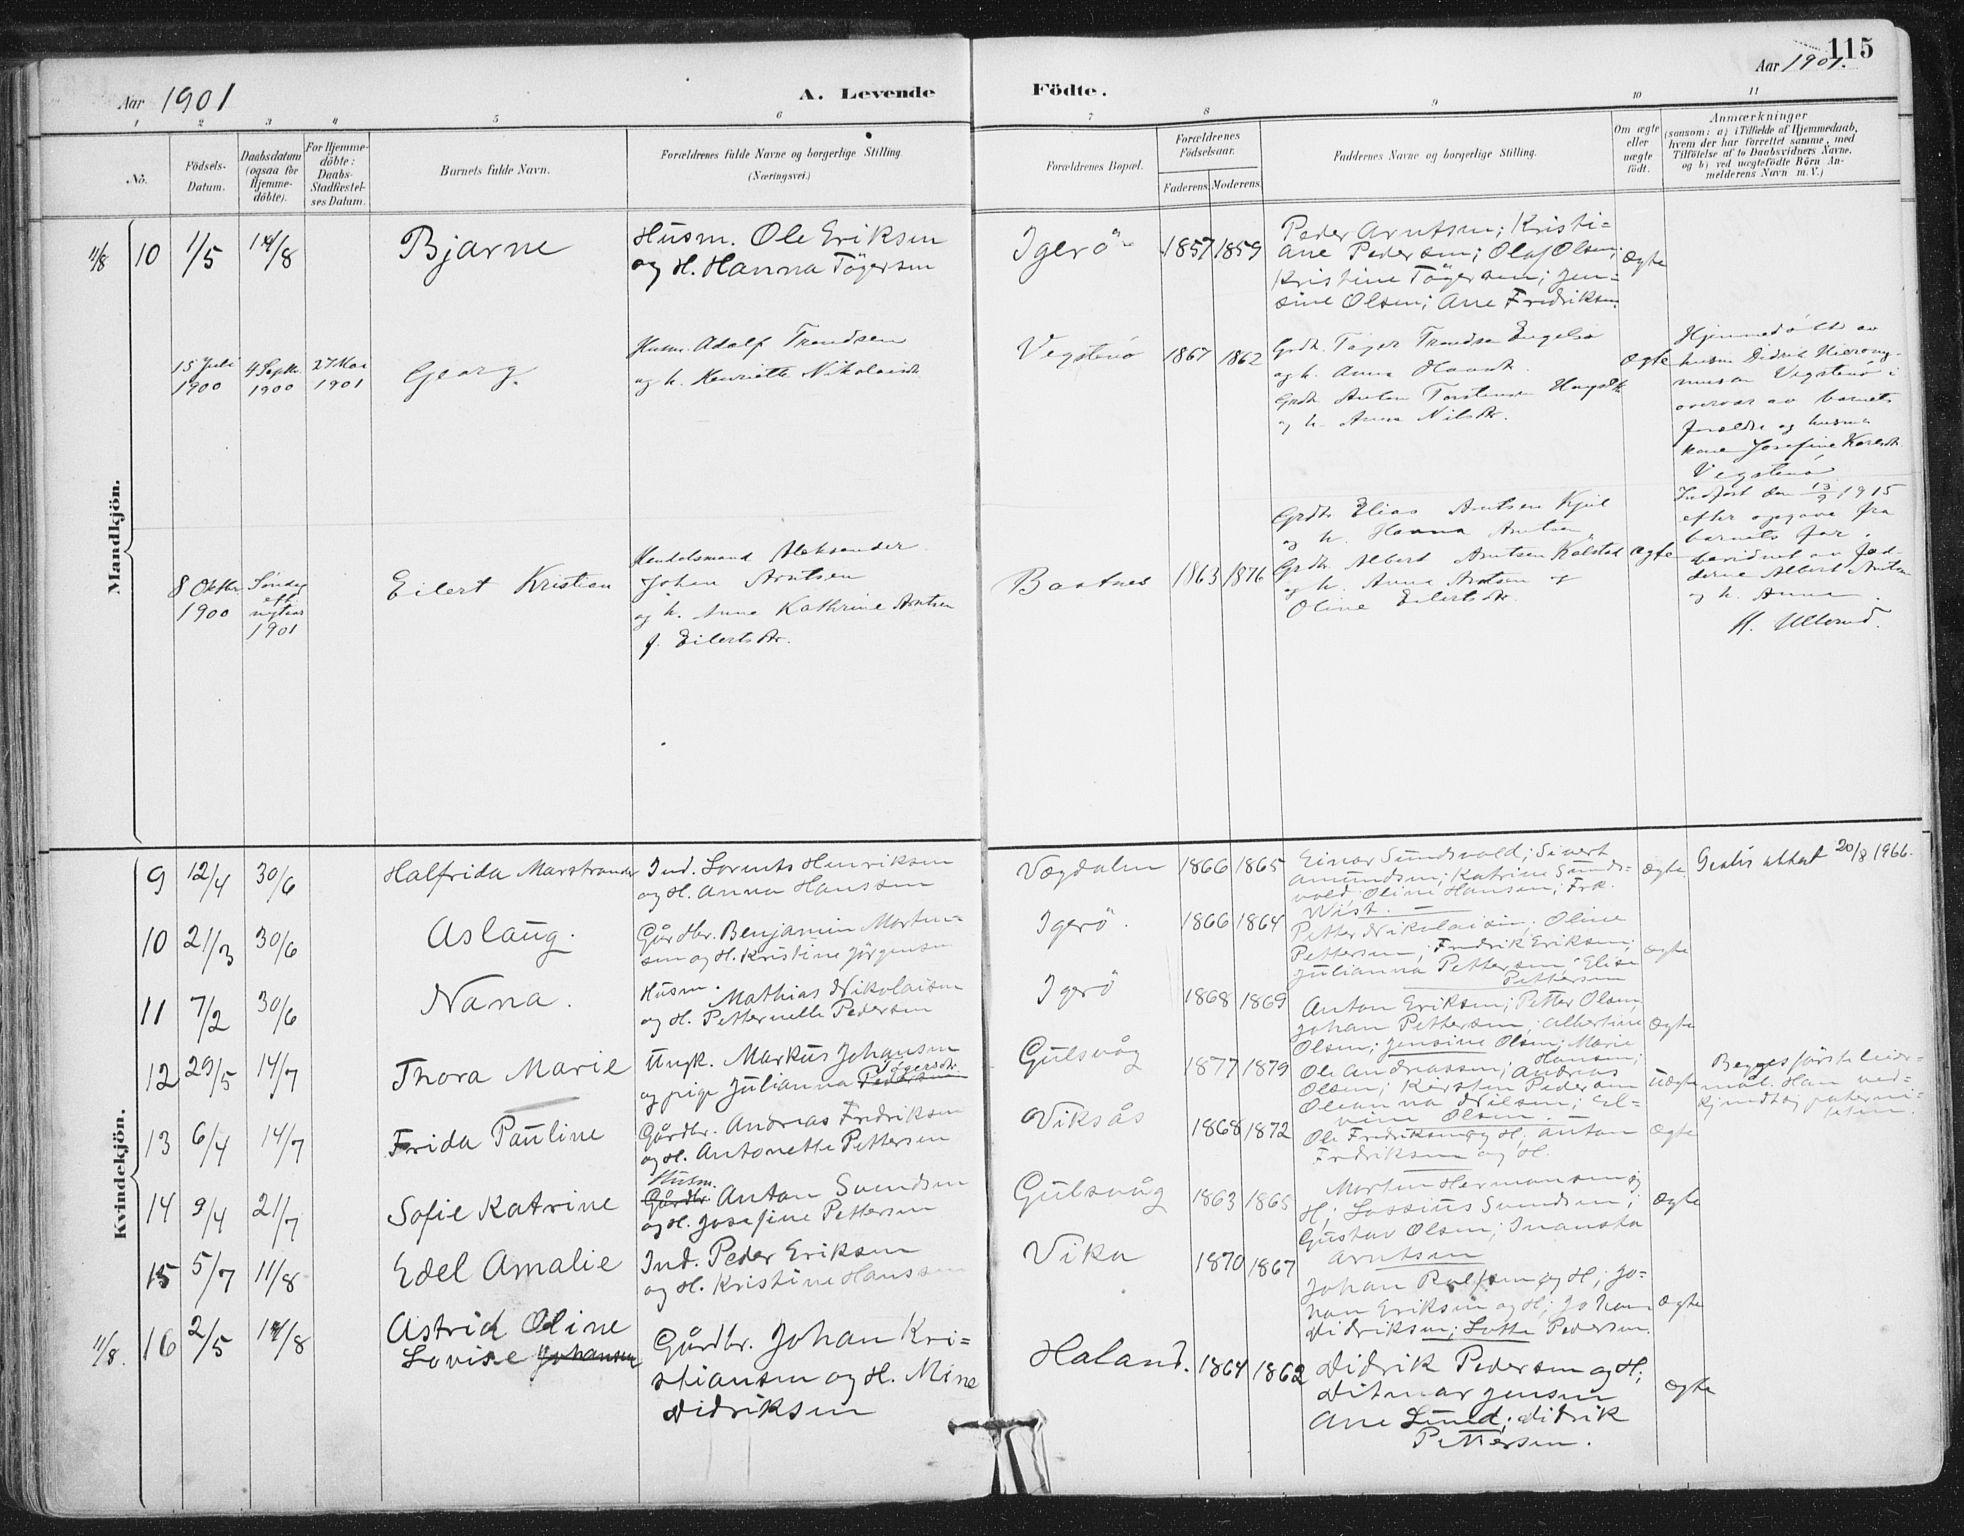 115
Aar 1901
A. Levende
Födte.
Aar 1901.
1 2 3 4 5 6 7 8 9 10 11
No.
Födsels-
Datum.
Daabsdatum
(ogsaa for
Hjemme-
döbte).
For Hjemme-
döbte:
Daabs-
Stadfæstel-
ses Datum.
Barnets fulde Navn.
Forældrenes fulde Navne og borgerlige Stilling
(Næringsvei.)
Forældrenes Bopæl.
Forældrenes
Födselsaar.
Faderens. Moderens.
Faddernes Navne og borgerlige Stilling.
Om ægte
eller
uægte
födt.
Anmærkninger
(saasom: a) i Tilfælde af Hjemmedaab,
hvem der har forrettet samme, med
Tilföielse af to Daabsvidners Navne,
og b) ved uægtefödte Börn An-
melderens Navn m. V.)
Mandkjön.
11/8 10 1/5 11/8
Bjarne
Husm. Ole Eriksen
og H. Hanna Tögersen
Igerö
1857 1859
Peder Arntsen; Kristi-
ane Pedersen; Olaf Olsen;
Kristine Tögersen; Jen-
sine Olsen; Ane Fredriksen
Ægte
15 Juli
1900
9 Septb
1900
27 Mai
1901
Georg.
Husm. Adolf Trondsen
og h. Henriette Nikolaidt
Vegstenö
1867 1862
Grdb. Töger Trondsen Engelsö
og h. Anna
Grdb. Anton Torstensen
og h. Anna Nilsdtr.
Ægte
Hjemmedöbt av
husm Didrik Hieronÿ-
musen Vegstenö i
overvær av barnets
forældre og husm
kone Josefine Karlsdt.
Vegstenö
8 Oktbr
1900
Söndag
eft.
nytaar
1901
Eilert Kristian
Handelsmand Aleksander
Johan Arntsen
og h. Anna Kathrine Arntsen
f. Eilertsdtr.
Bastnes
1863 1876
Grdb. Elias Arntsen Kjul
og h. Hanna Arntsen
Grdb. Albert Arntsen Kalstad
og h. Anna Arntsen og
Oline Eilertsdtr.
Ægte
Indfört den 13/9 1915
efter opgave fra
barnets far.
bevidnet av fad-
derne Albert Arntsen
og h. Anna.
Kvindekjön.
9 12/4 30/6
Halfrida Marstrander
Ind. Lorents Henriksen
og H. Anna Hanssen
Vægdalen
1866 1865
Einar Sundsvold; Sivert
Amundsen; Katrine Sunds-
vold; Oline Hansen; Frk.
Wist.
Ægte
Gratis attest 20/8 1966.
10 21/3 30/6
Aslaug.
Gårdbr. Benjamin Morten-
sen og H. Kristine Jörgensen
Igerö.
1866 1864
Petter Nikolaisen; Oline
Pettersen; Fredrik Eriksen;
Julianna Pettersen Elise
Pettersen
Ægte
11 7/2 30/6
Nana.
Husm. Mathias Nikolaisen
og H. Petternelle Pedersen
Igerö
1868 1869
Anton Eriksen; Petter Olsen;
Johan Pettersen; Albertine
Olsen; Jensine Olsen; Marie
Hansen;
Ægte
12 29/5 14/7
Thora Marie
Ungk. Markus Johansen
Tögersdtr.
og pige Julianna Pedersen
Gulsvåg
1877 1879
Ole Andreassen; Andreas
Olsen; Kirsten Pedersen
Oleanna Nilsen; El-
vine Olsen
Uægte
Begges förste leier-
maal. Han ved-
kjendt sig paterni-
teten
13 6/4 14/7
Frida Pauline
Gårdbr. Andreas Fredriksen
og H. Antonette Pettersen
Viksås
1868 1872
Ole Fredriksen og H; Anton
Fredriksen og H.
Ægte
14 9/4 21/7
Sofie Katrine
Husm.
Gårdbr. Anton Svendsen
og H. Josefine Pettersen
Gulsvåg
1863 1865
Morten Hermansen og
H; Lossius Svendsen;
Gustav Olsen; Inanska
Arntsen
Ægte
15 5/7 11/8
Edel Amalie
Ind. Peder Eriksen
og H. Kristine Hanssen
Vika
1870 1867
Johan Rolfsen og H; Jo-
han Eriksen og H; Johan
Didriksen; Lotte Pedersen.
Ægte
11/8. 16 2/5 11/8
Astrid Oline
Lovise Johansen
Gårdbr. Johan Kri-
stiansen og H. Mine
Didriksen
Haland.
1864 1862
Didrik Pedersen og H;
Ditmar Jensen
Ane Lund; Didrik
Pettersen.
Ægte